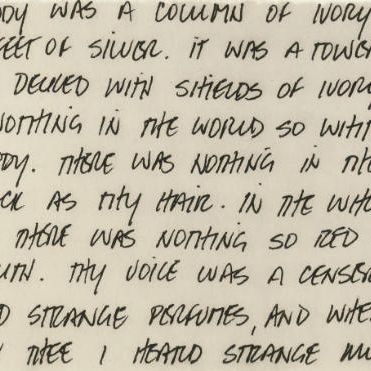 ODY WAS A COLUMN OF IVORY
FEET OF SILVER. IT WAS A TOWER
DECKED WITH SHIELDS OF IVORY
NOTHING IN THE WORLD SO WHIT
ODY. THERE WAS NOTHING IN THE
CK AS THY HAIR. IN THE WHO
THERE WAS NOTHING SO RED
UTH. THY VOICE WAS A CENSER
D STRANGE PERFUMES, AND WHE
THEE I HEARD STRANGE MU